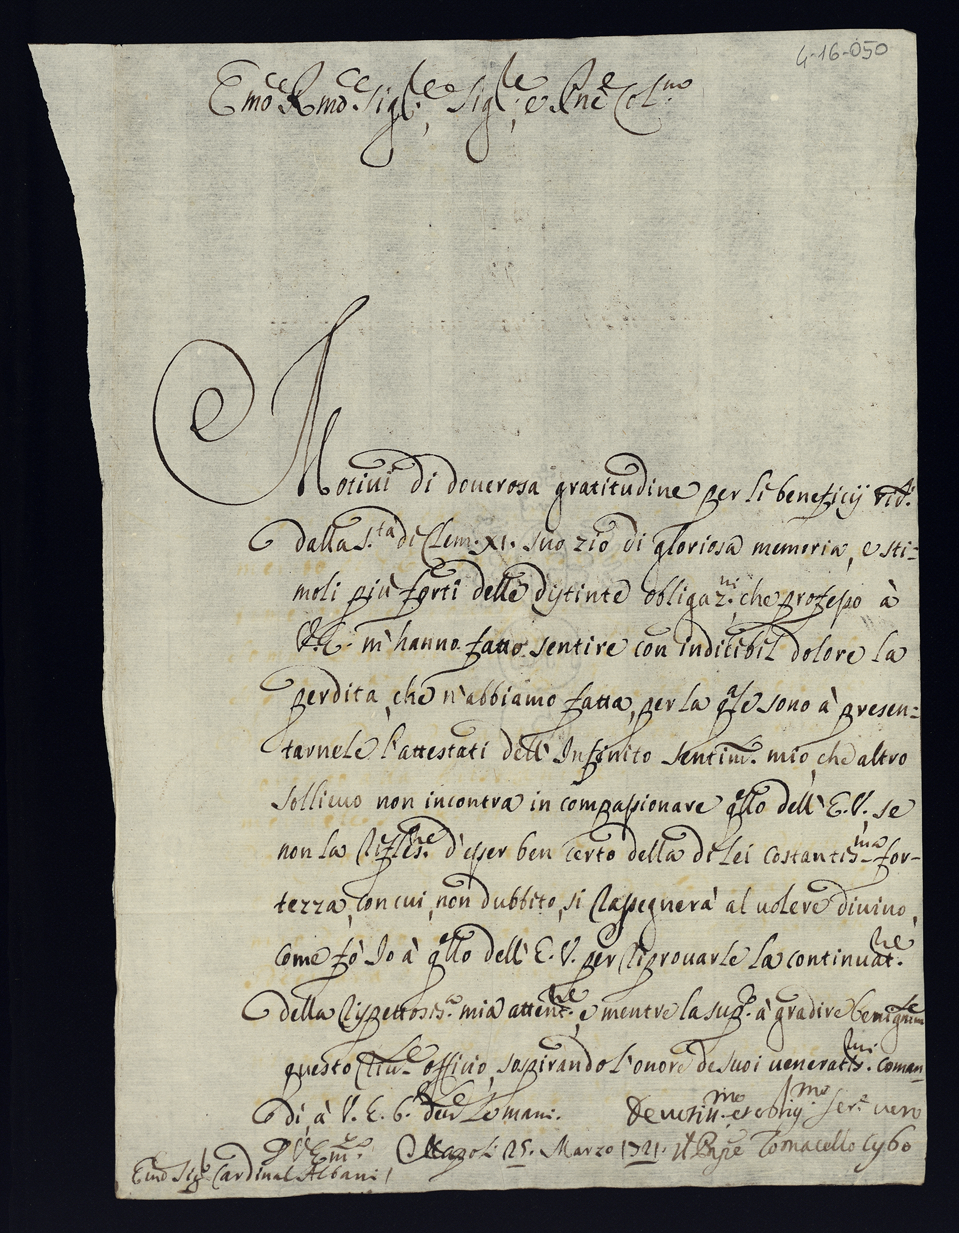 4-16-050
Emo e Rmo Sig.re Sig.re e Pne Col.mo
Motivi di doverosa gratitudine per li beneficij
dalla S.tà di Clem. XI. suo zio di gloriosa memoria, e sti=
moli più forti delle distinte obligaz.ni che professo à
V.E. m'hanno fatto sentire con indicibil dolore la
perdita, che n'abbiamo fatta, per la q.le sono à presen=
tarnele l'attestati dell'Infinito sentim.to mio, che altro
sollievo non incontra in compassionare q.llo dell'E.V. se
non la rifless.ne d'esser ben certo della di lei costantis.ma for-
tezza, con cui, non dubbito, si rassegnerà al volere divino,
come fò Io à q.llo dell'E.V. per riprovarle la continuat.ne
della rispettosis.a mia attent.ne, e mentre la sup.co à gradire benignam.te
questo officio, sospirando l'onore de suoi veneratis.mi coman=
di, à V.E. b. le mani.
Devotiss.mo et oblig.mo Ser.e vero
D V Em.a Napoli 25. Marzo 1721. Il Pnpe Tomacello Cybo
Emo Sig.r Cardinal Albani